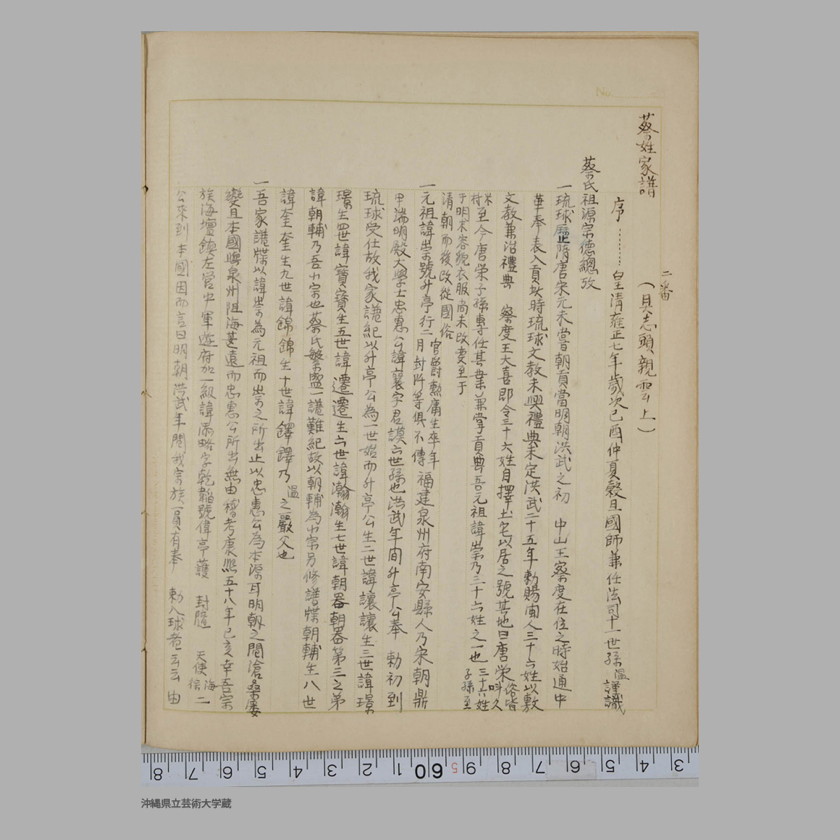 蔡姓家譜
二番
(具志頭親雲上)
序……皇清雍正七年歳次己酉仲夏穀旦國師兼任法司十一世孫温謹識
蔡氏祖源宗德總攷
一琉球歴隋唐宋元未嘗朝貢當明朝洪武之初 中山王察度在位之時始通中
華奉表入貢於時琉球文教未興禮典未定洪武二十五年勅賜閩人三十六姓以敷
文教兼治禮典 察度王大喜即令三十六姓自擇土宅以居之號其地曰唐榮俗皆叫久
米村至今唐榮子孫專任其業兼掌貢典吾元祖諱崇乃三十六姓之一也三十六姓子孫至
于明末容貌衣服尚未改変至于
清朝而後改從國俗
一元祖諱崇號升亭行二官爵勲庸生卒年月封所等俱不傳福建泉州府南安縣人乃宋朝鼎
甲端明殿大學士忠惠公諱襄字君謨六世孫也洪武年間升亭公奉 勅初到
琉球受仕故我家譜紀以升亭公為一世始而升亭公生二世諱讓讓生三世諱璟
璟生四世諱寶寶生五世諱遷遷生六世諱瀚瀚生七世諱朝器朝器第三之弟
諱朝輔乃吾小宗也蔡氏繁盛一譜難紀故以朝輔為小宗另修譜牒朝輔生八世
諱奎奎生九世諱錦錦生十世諱鐸鐸乃温之嚴父也
一吾家譜牒以諱崇為元祖而崇之所出止以忠惠公為本源耳明朝之間滄桑屢
變且本國與泉州阻海甚遠而忠惠公所出無由稽考康熙五十八年己亥幸吾宗
族海壇鎮左營中軍遊府加一級諱 略字乾 號偉亭護 封隨 天使海 二
公来到本國因而言曰明朝洪武年間我宗族一員有奉 勅入球者云云由
8 7 6 5 4 3 2 1 60 9 8 7 6 5 4 3
沖縄県立芸術大学蔵